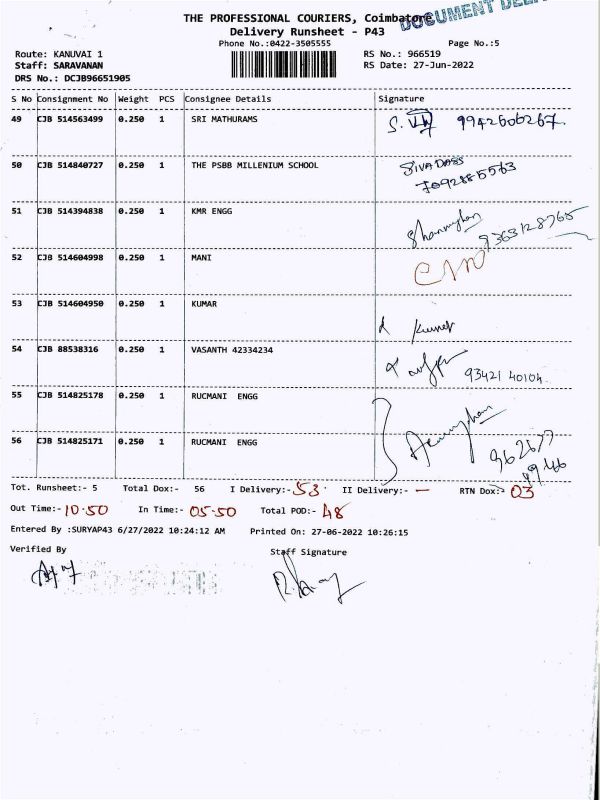 THE PROFESSIONAL COURIERS, Coimbatore
DOCUMENT
Delivery Runsheet - P43
Phone No.:0422-3505555 Page No.:5
Route: KANUVAI 1 RS No.: 966519
Staff: SARAVANAN RS Date: 27-Jun-2022
DRS No.: DCJB96651905
S No Consignment No Weight PCS Consignee Details Signature
49 CJB 514563499 0.250 1 SRI MATHURAMS 9942606267
50 CJB 514840727 0.250 1 THE PSBB MILLENIUM SCHOOL SIVADASS
7092885563
51 CJB 514394838 0.250 1 KMR ENGG Shanmughan
9363128765
52 CJB 514604998 0.250 1 MANI
53 CJB 514604950 0.250 1 KUMAR Kumar
54 CJB 88538316 0.250 1 VASANTH 42334234 93421 40104
55 CJB 514825178 0.250 1 RUCMANI ENGG
56 CJB 514825171 0.250 1 RUCMANI ENGG
Tot. Runsheet:- 5 Total Dox:- 56 I Delivery:- 53 II Delivery:- — RTN Dox:- 03
Out Time:- 10.50 In Time:- 05.50 Total POD:- 48
Entered By :SURYAP43 6/27/2022 10:24:12 AM Printed On: 27-06-2022 10:26:15
Verified By Staff Signature